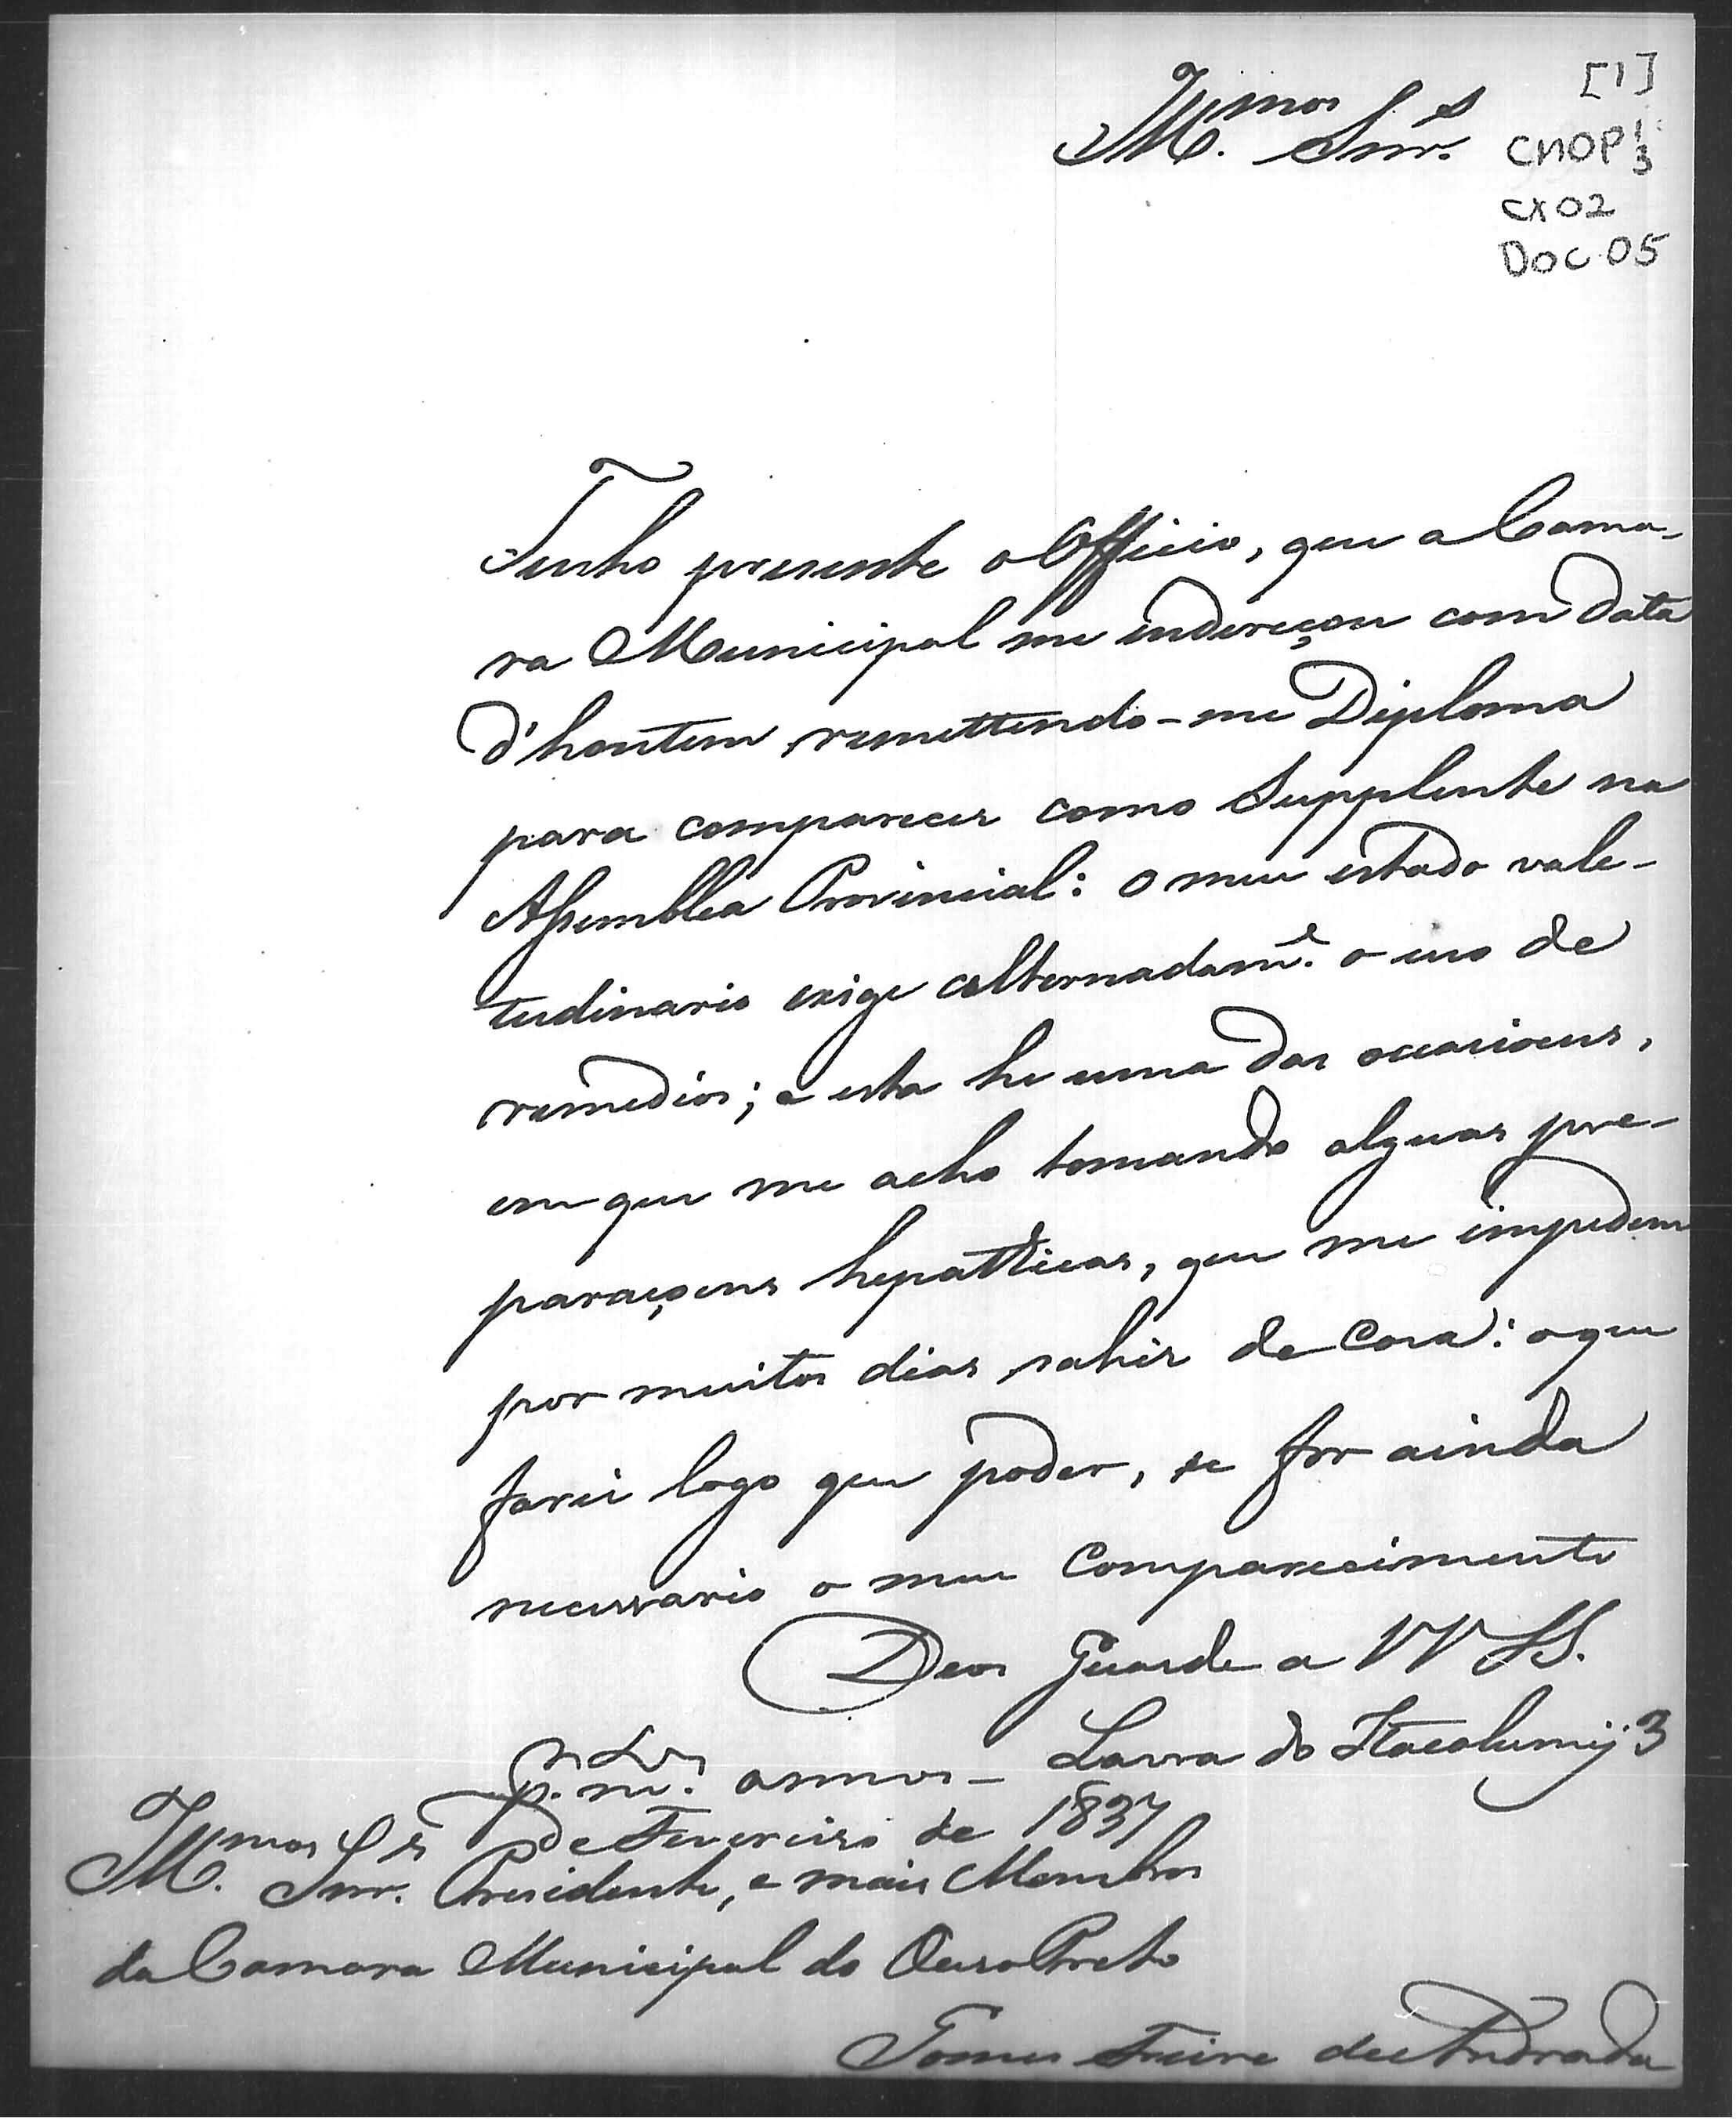 [1]
Illmos Snrs.
CMOP 1/3
CX 02
DOC. 05
Tenho presente o Officio, que a Cama-
ra Municipal me endereçou com data
d'hontem remettendo-me Diploma
para comparecer como Supplente na
Assemblea Provincial: o meu estado vale-
tudinario exige alternadamte. o uso de
remedios; e esta he uma das occasioens,
em que me acho tomando alguas pre-
paraçoens hepatticas, que me impedem
por muitos dias sahir de Casa: o que
farei logo que poder, se for ainda
necessario o meu comparecimento
Deos Guarde a VV SS.
annos - Lavra do Itacolumij 3
de Fevereiro de 1837
Illmos Snrs. Presidente, e mais Membros
da Camara Municipal do Ouro Preto
Gomes Freire de Andrada